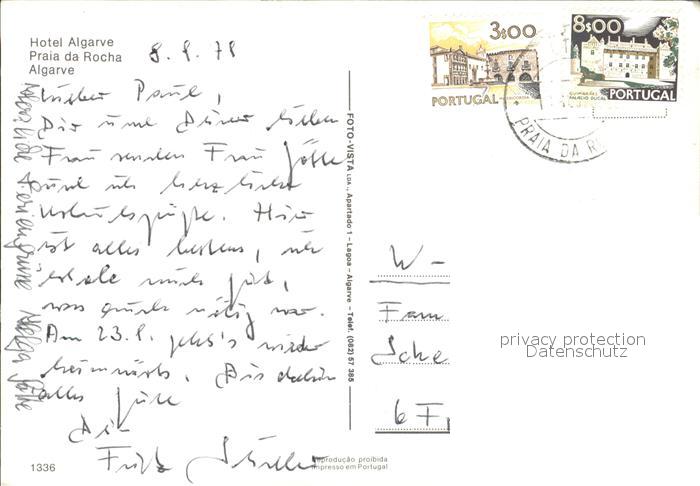 Hotel Algarve
Praia da Rocha
Algarve
8. 9. 78
Lieber Paul,
Dir und Deiner lieben
Frau senden Frau Götte
und ich herzliche
Urlaubsgrüße. Hier
ist alles bestens, ich
erhole mich gut,
was auch nötig war.
Am 23.9. geht's wieder
heimwärts. Bis dahin
alles Gute
Dein
Fritz
Feriengrüße Helga Götte
FOTO-VISTA LDA., Apartado 1 - Lagoa - Algarve - Telef. (082) 57 385
3$00
PORTUGAL
8$00
GUIMARÃES
PALÁCIO DUCAL
PORTUGAL
PRAIA DA R
W-
Fam
Sche
6 F
privacy protection
Datenschutz
1336
Reprodução proibida
Impresso em Portugal